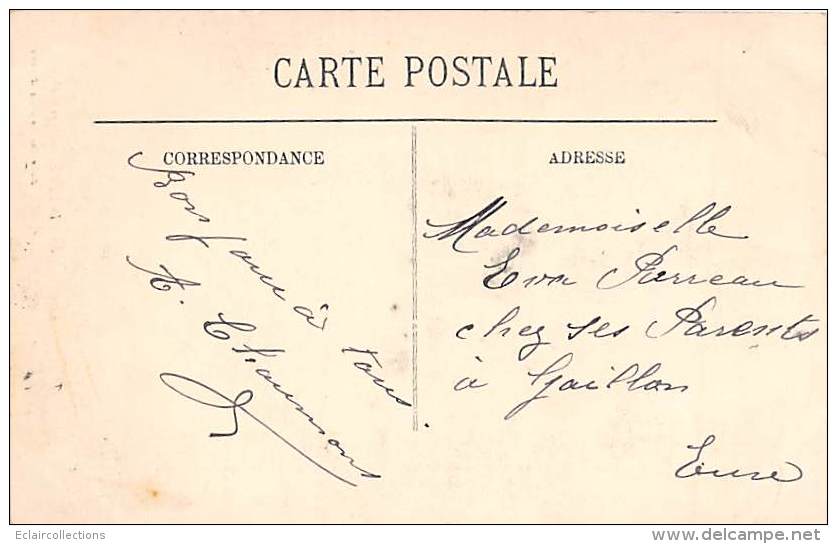 CARTE POSTALE
CORRESPONDANCE
ADRESSE
Bonjour à tous.
A. Chaumont
Mademoiselle
Eva Parreau
chez ses Parents
à Gaillon
Eure
Eclaircollections
delcampe.net